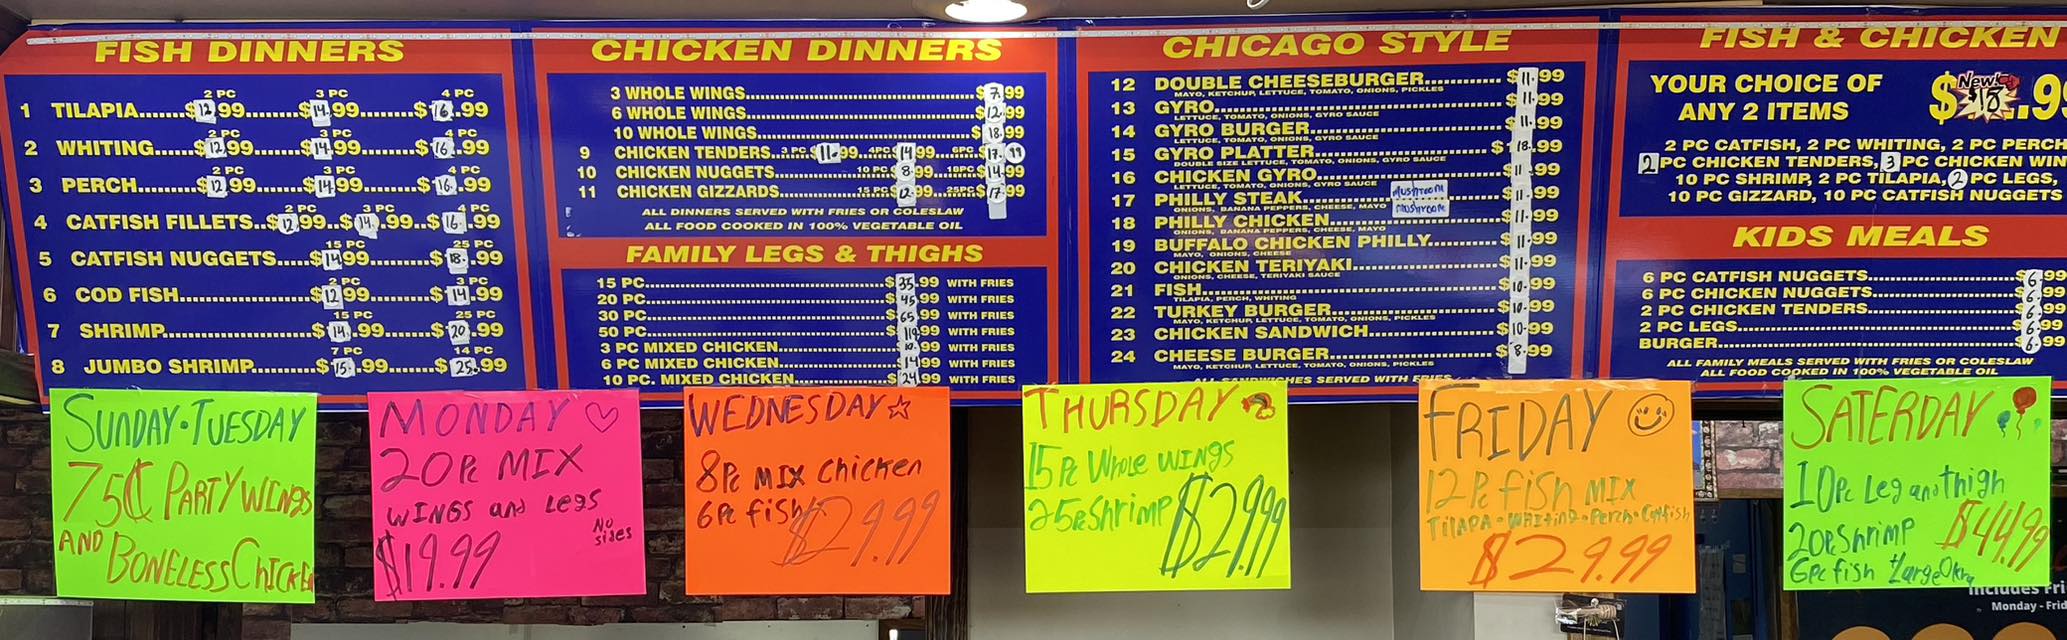 FISH DINNERS
2 PC 3 PC 4 PC
1 TILAPIA......$12.99.......$14.99.......$16.99
2 PC 3 PC 4 PC
2 WHITING......$12.99.......$14.99.......$16.99
2 PC 3 PC 4 PC
3 PERCH......$12.99.......$14.99.......$16.99
2 PC 3 PC 4 PC
4 CATFISH FILLETS..$12.99...$14.99..$16.99
15 PC 25 PC
5 CATFISH NUGGETS.....$14.99.......$18.99
2 PC 3 PC
6 COD FISH.......$12.99.......$14.99
15 PC 25 PC
7 SHRIMP.......$14.99.......$20.99
7 PC 14 PC
8 JUMBO SHRIMP.......$15.99.......$25.99
CHICKEN DINNERS
3 WHOLE WINGS.......$7.99
6 WHOLE WINGS.......$12.99
10 WHOLE WINGS.......$18.99
9 CHICKEN TENDERS..3 PC $11.99...4PC $14.99...6PC $17.99
10 CHICKEN NUGGETS.......10 PC $8.99...15PC $14.99
11 CHICKEN GIZZARDS.......15 PC $12.99...25PC $17.99
ALL DINNERS SERVED WITH FRIES OR COLESLAW
ALL FOOD COOKED IN 100% VEGETABLE OIL
FAMILY LEGS & THIGHS
15 PC.......$35.99 WITH FRIES
20 PC.......$45.99 WITH FRIES
30 PC.......$65.99 WITH FRIES
50 PC.......$119.99 WITH FRIES
3 PC MIXED CHICKEN.......$10.99 WITH FRIES
6 PC MIXED CHICKEN.......$14.99 WITH FRIES
10 PC. MIXED CHICKEN.......$24.99 WITH FRIES
CHICAGO STYLE
12 DOUBLE CHEESEBURGER.......$11.99
MAYO, KETCHUP, LETTUCE, TOMATO, ONIONS, PICKLES
13 GYRO.......$11.99
LETTUCE, TOMATO, ONIONS, GYRO SAUCE
14 GYRO BURGER.......$11.99
LETTUCE, TOMATO, ONIONS, GYRO SAUCE
15 GYRO PLATTER.......$18.99
DOUBLE SIZE LETTUCE, TOMATO, ONIONS, GYRO SAUCE
16 CHICKEN GYRO.......$11.99
17 PHILLY STEAK.......Mushroom $11.99
ONIONS, BANANA PEPPERS, CHEESE, MAYO Mushroom
18 PHILLY CHICKEN.......$11.99
ONIONS, BANANA PEPPERS, CHEESE, MAYO
19 BUFFALO CHICKEN PHILLY.......$11.99
MAYO, ONIONS, CHEESE
20 CHICKEN TERIYAKI.......$11.99
ONIONS, CHEESE, TERIYAKI SAUCE
21 FISH.......$10.99
TILAPIA, PERCH, WHITING
22 TURKEY BURGER.......$10.99
MAYO, KETCHUP, LETTUCE, TOMATO, ONIONS, PICKLES
23 CHICKEN SANDWICH.......$10.99
24 CHEESE BURGER.......$8.99
MAYO, KETCHUP, LETTUCE, TOMATO, ONIONS, PICKLES
ALL SANDWICHES SERVED WITH FRIES
FISH & CHICKEN
YOUR CHOICE OF
ANY 2 ITEMS
New! $18.99
2 PC CATFISH, 2 PC WHITING, 2 PC PERCH
2 PC CHICKEN TENDERS, 3 PC CHICKEN WIN
10 PC SHRIMP, 2 PC TILAPIA, 2 PC LEGS,
10 PC GIZZARD, 10 PC CATFISH NUGGETS
KIDS MEALS
6 PC CATFISH NUGGETS.......$6.99
6 PC CHICKEN NUGGETS.......$6.99
2 PC CHICKEN TENDERS.......$6.99
2 PC LEGS.......$6.99
BURGER.......$6.99
ALL FAMILY MEALS SERVED WITH FRIES OR COLESLAW
ALL FOOD COOKED IN 100% VEGETABLE OIL
SUNDAY•TUESDAY
75¢ PARTY WINGS
AND BONELESS CHICKEN
MONDAY
20Pc MIX
WINGS and Legs
No sides
$19.99
WEDNESDAY
8Pc MIX Chicken
6Pc fish $29.99
THURSDAY
15Pc Whole WINGS
25Pc Shrimp $29.99
FRIDAY
12Pc fish MIX
Tilapa•Whiting•Perch•Catfish
$29.99
SATERDAY
10Pc Leg and thigh
20Pc Shrimp $44.99
6Pc fish 1 Large Okra
Includes Fri
Monday - Frid